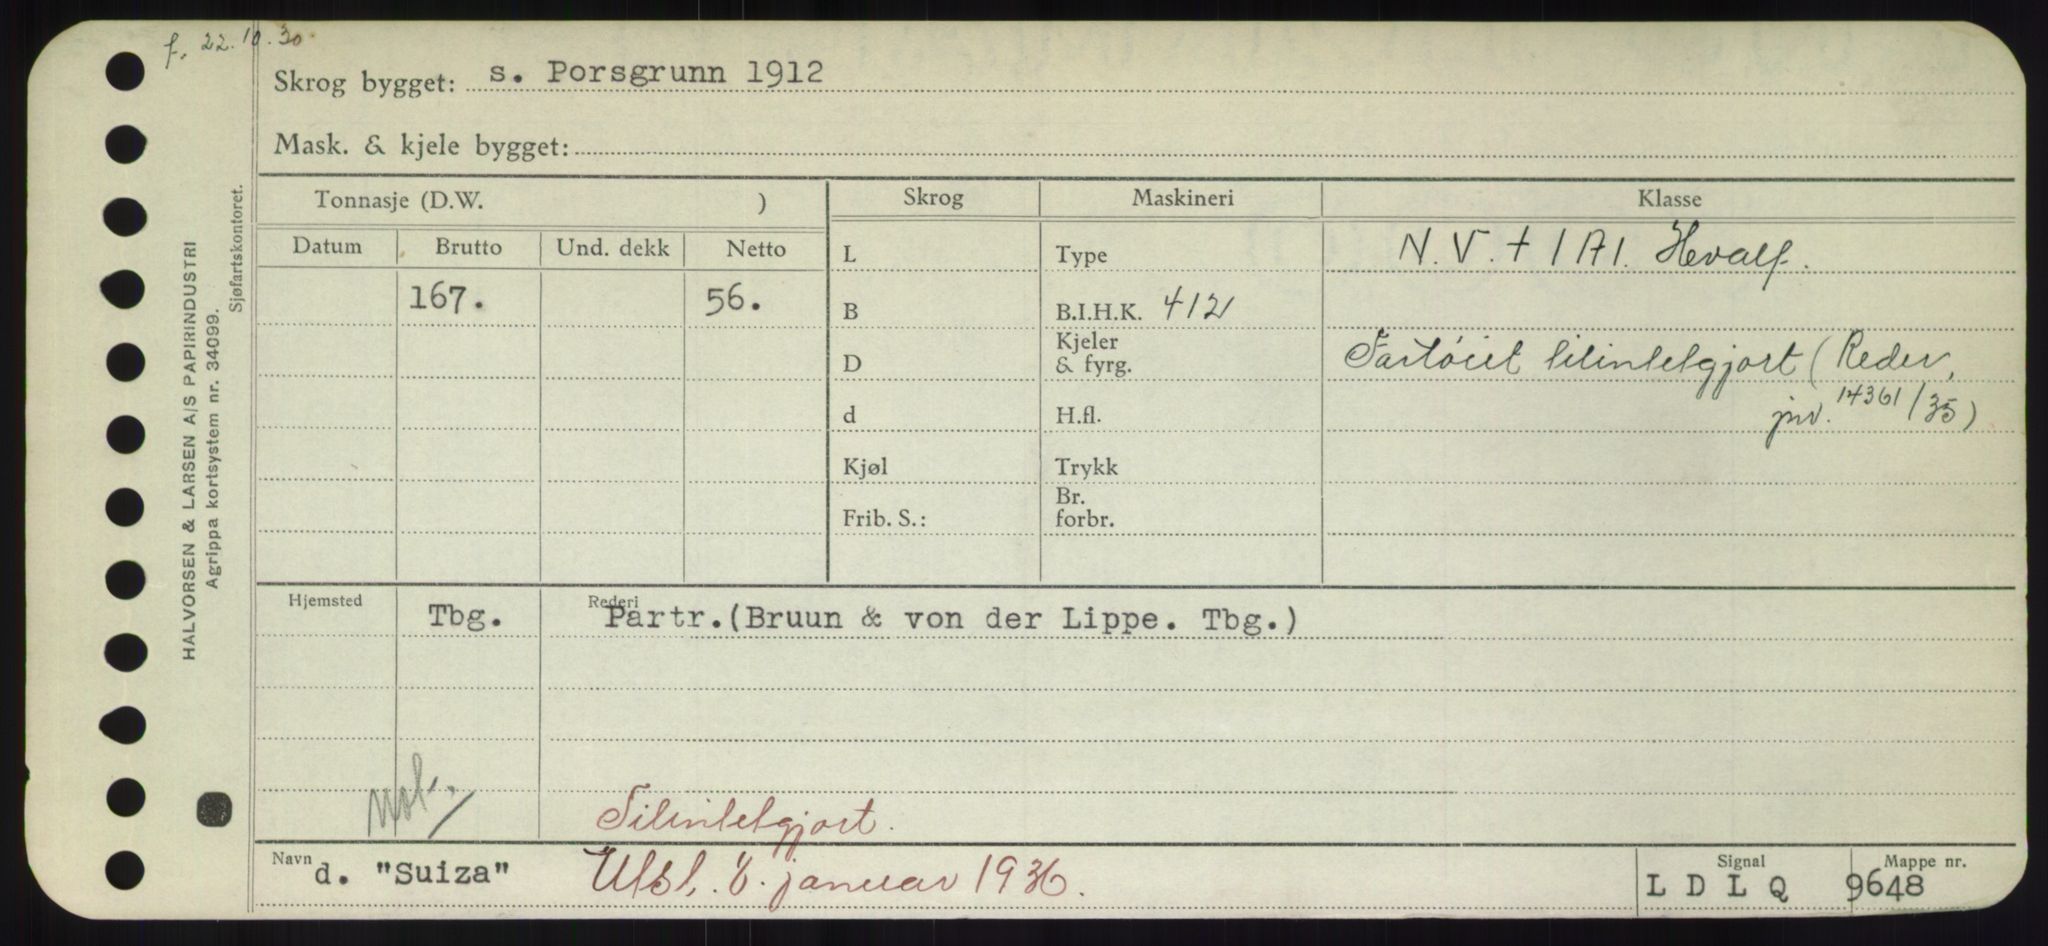 f. 22.10.30.
Skrog bygget: s. Porsgrunn 1912
Mask. & kjele bygget:
Tonnasje (D.W. )
Skrog
Maskineri
Klasse
Datum
Brutto
Und. dekk
Netto
L
Type
N.V. + 1A1. Hvalf.
167.
56.
B
B.I.H.K. 412
D
Kjeler
& fyrg.
Fartøiet tilintetgjort (Reder,
jnr. 14361/35)
d
H.fl.
Kjøl
Trykk
Frib. S.:
Br.
forbr.
Hjemsted
Tbg.
Rederi
Partr.(Bruun & von der Lippe. Tbg.)
Tilintetgjort.
Navn
d. "Suiza"
Utsl. 8. januar 1936.
Signal
L D L Q
Mappe nr.
9648
HALVORSEN & LARSEN A/S PAPIRINDUSTRI
Agrippa kortsystem nr. 34099.
Sjøfartskontoret.